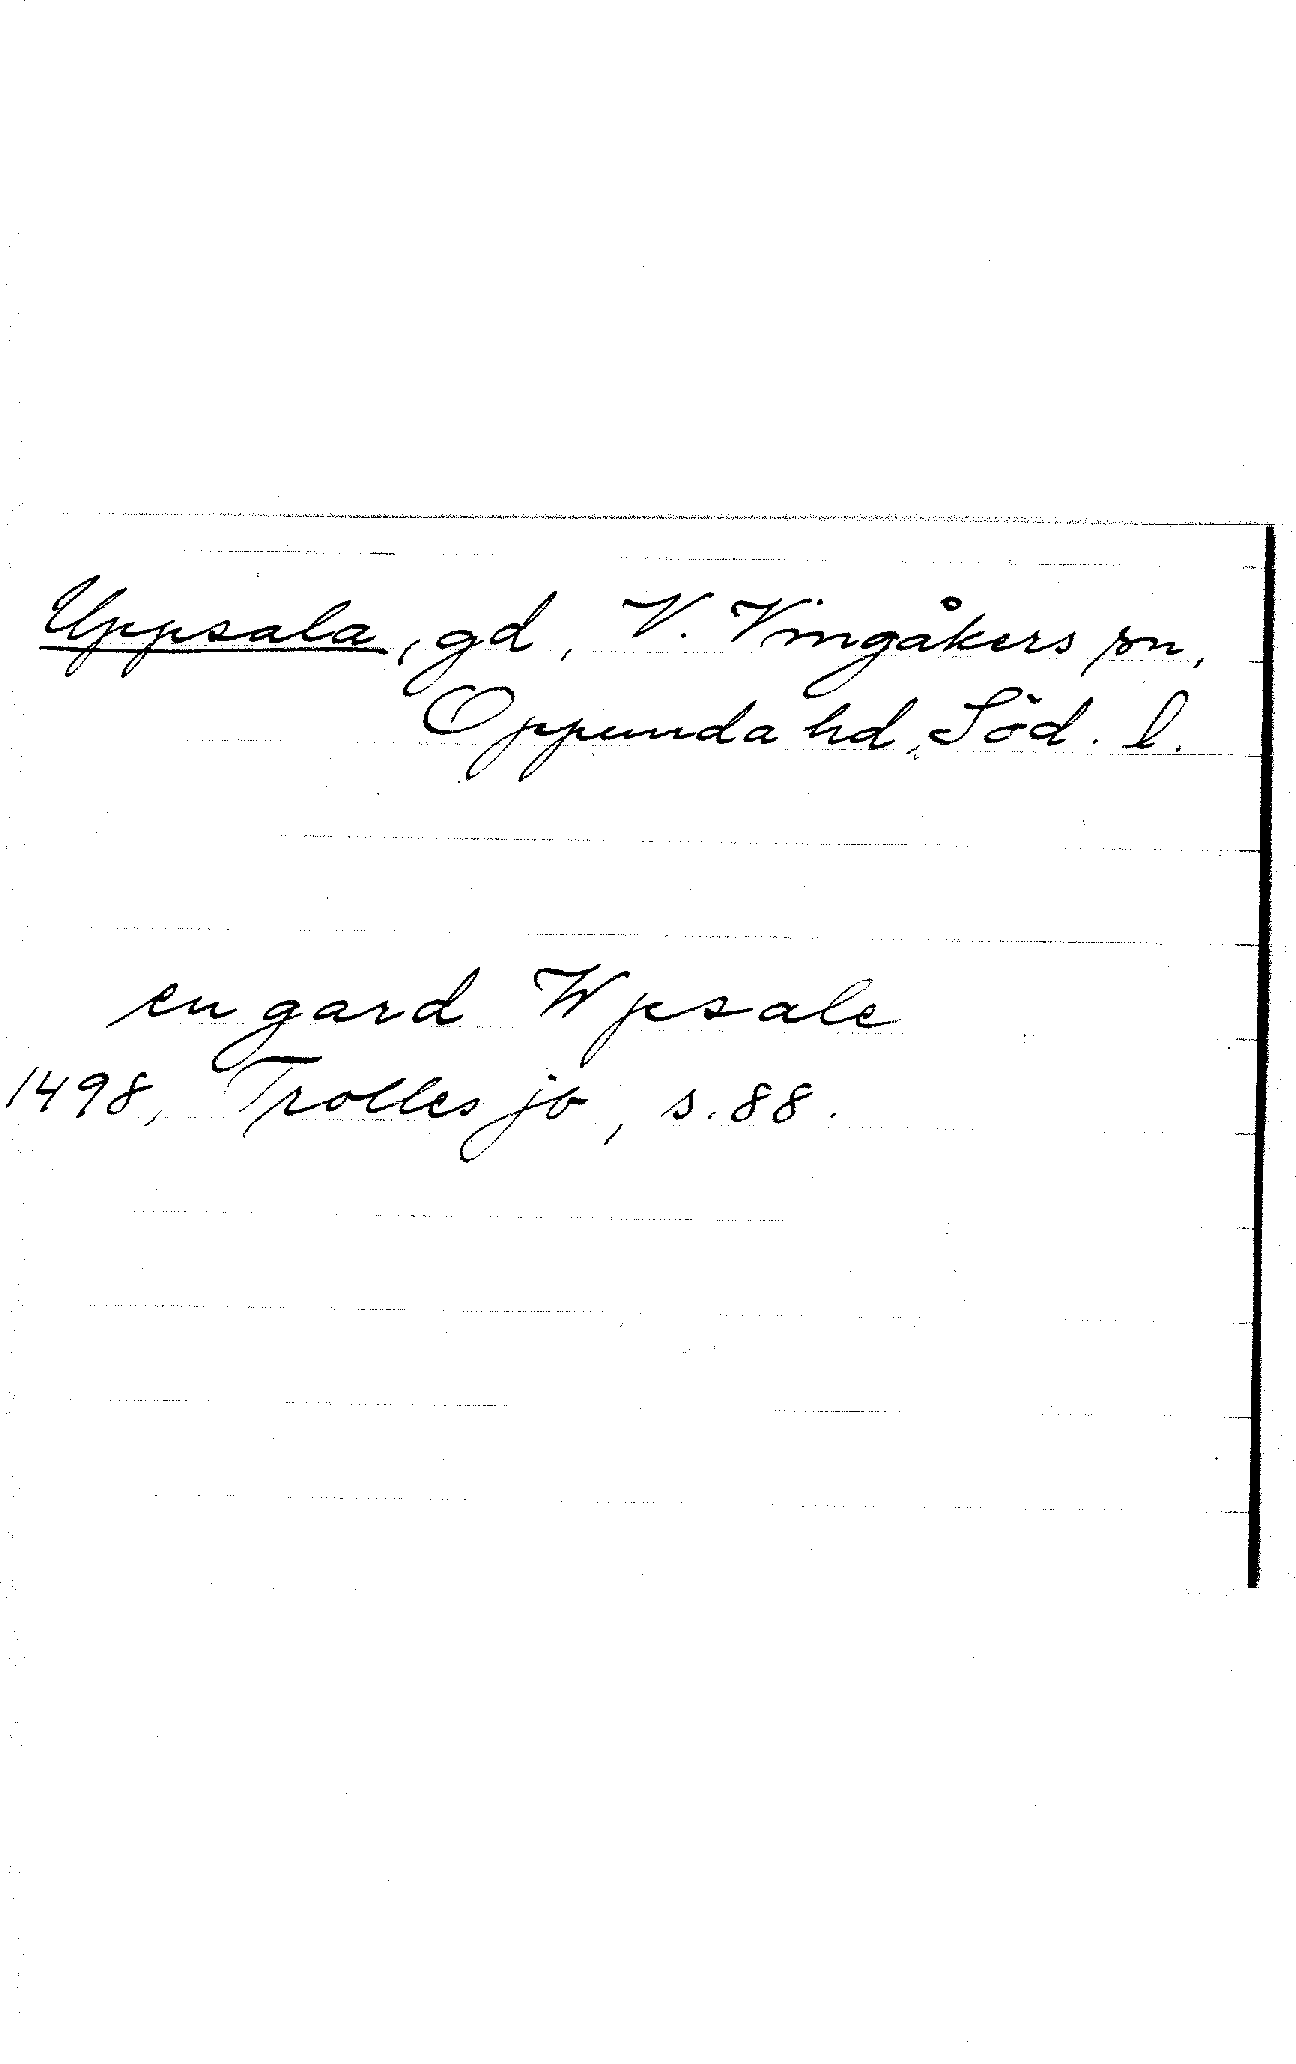 Uppsala, gd, V. Vingåkers sn,
Oppunda hd, Söd. l.
en gard Wpsale
1498, Trolles jb, s. 88.